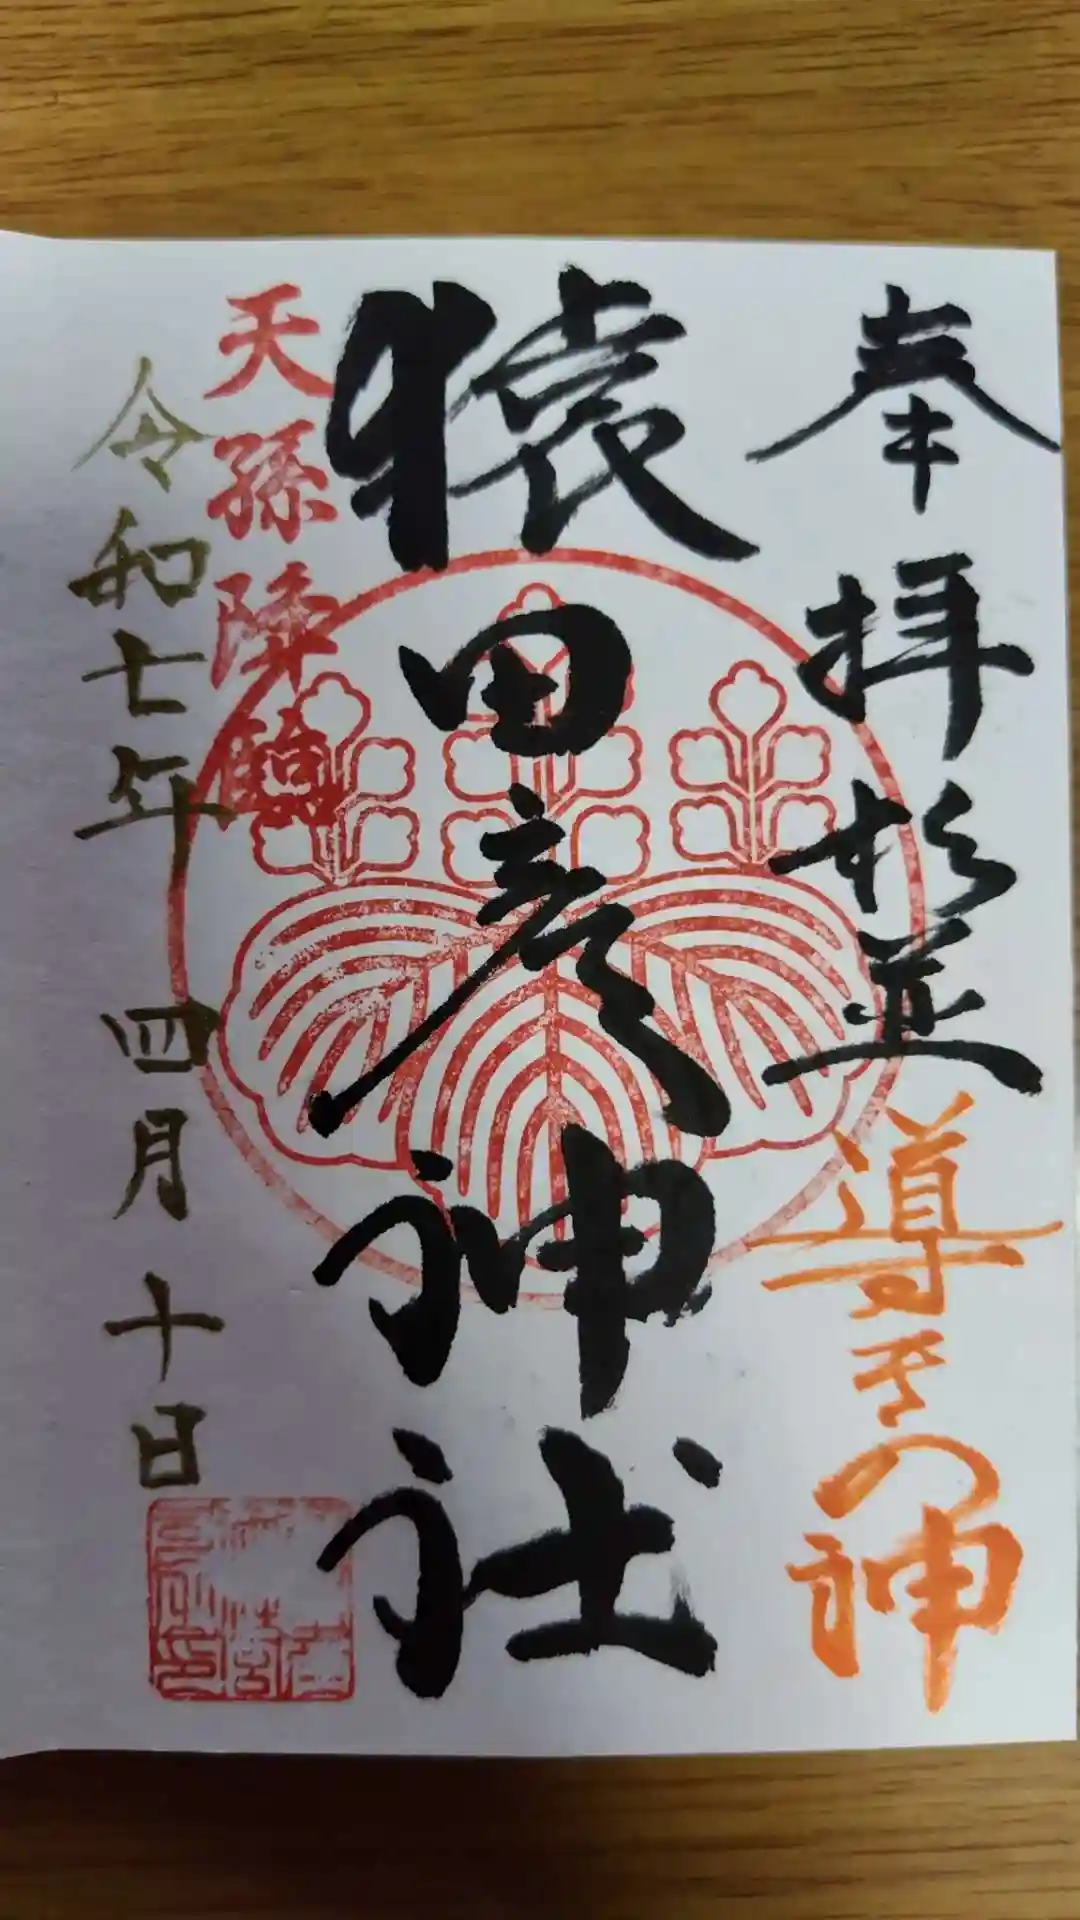 奉拝杉並
導きの神
猿田彦神社
天孫降臨
令和七年四月十日